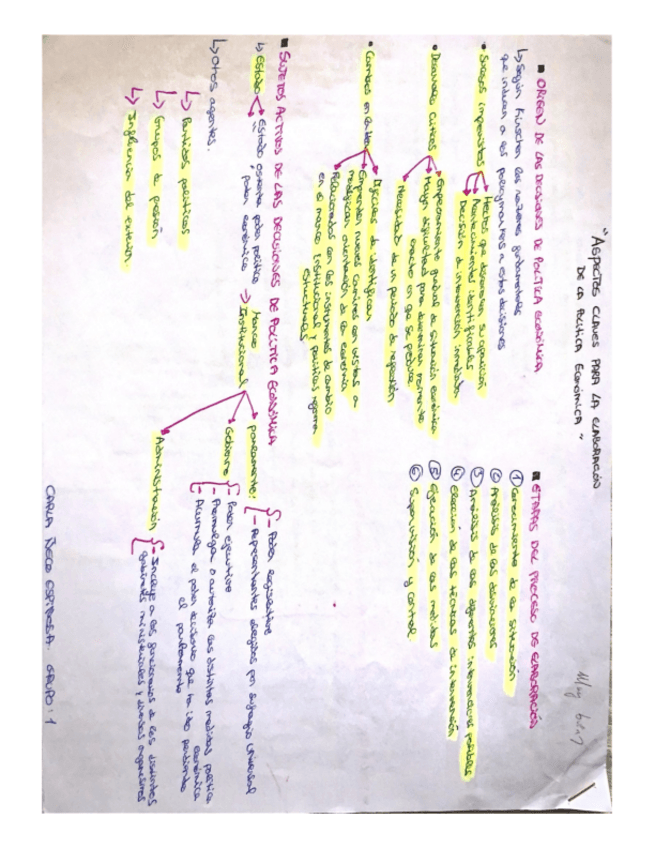 "ASPECTOS CLAVES PARA LA ELABORACIÓN
DE LA POLÍTICA ECONÓMICA"
Muy bien
ORIGEN DE LAS DECISIONES DE POLÍTICA ECONÓMICA
↳ Según Kirschen las razones fundamentales
que inducen a los policymakers a estas decisiones
• Sucesos imprevistos
Hechos que determinan su aparición
Acontecimientos identificables
Decisión de intervención inmediata
• Desarrollo críticos
Empeoramiento gradual de situación económica
Mayor dificultad para determinar momento
exacto en que se produce
Necesidad de un período de reflexión
• Cambios en
Difíciles de identificar
Emprender nuevos caminos con vistas a
modificar orientación de la economía
Relacionados con los instrumentos de cambio
en el marco Institucional y políticas reforma
estructurales
ETAPAS DEL PROCESO DE ELABORACIÓN
① Conocimiento de la situación
② Análisis de las desviaciones
③ Análisis de las diferentes intervenciones posibles
④ Elección de las técnicas de intervención
⑤ Ejecución de las medidas
⑥ Supervisión y control
SUJETOS ACTIVOS DE LAS DECISIONES DE POLÍTICA ECONÓMICA
↳ Estado
Estado ostenta poder político
" poder económico
→ Marco
Institucional
Parlamento:
- Poder legislativo
- Representantes elegidos por Sufragio Universal
Gobierno
- Poder ejecutivo
- Promulga o autoriza las distintas medidas política
económica
- Acumula el poder decisorio que ha ido perdiendo
el parlamento
Administración
- Incluye a los funcionarios de los distintos
gabinetes ministeriales y diversos organismos
↳ Otros agentes.
↳ Partidos políticos
↳ Grupos de presión
↳ Influencia del exterior.
CARLA ESPINOSA. GRUPO: 1